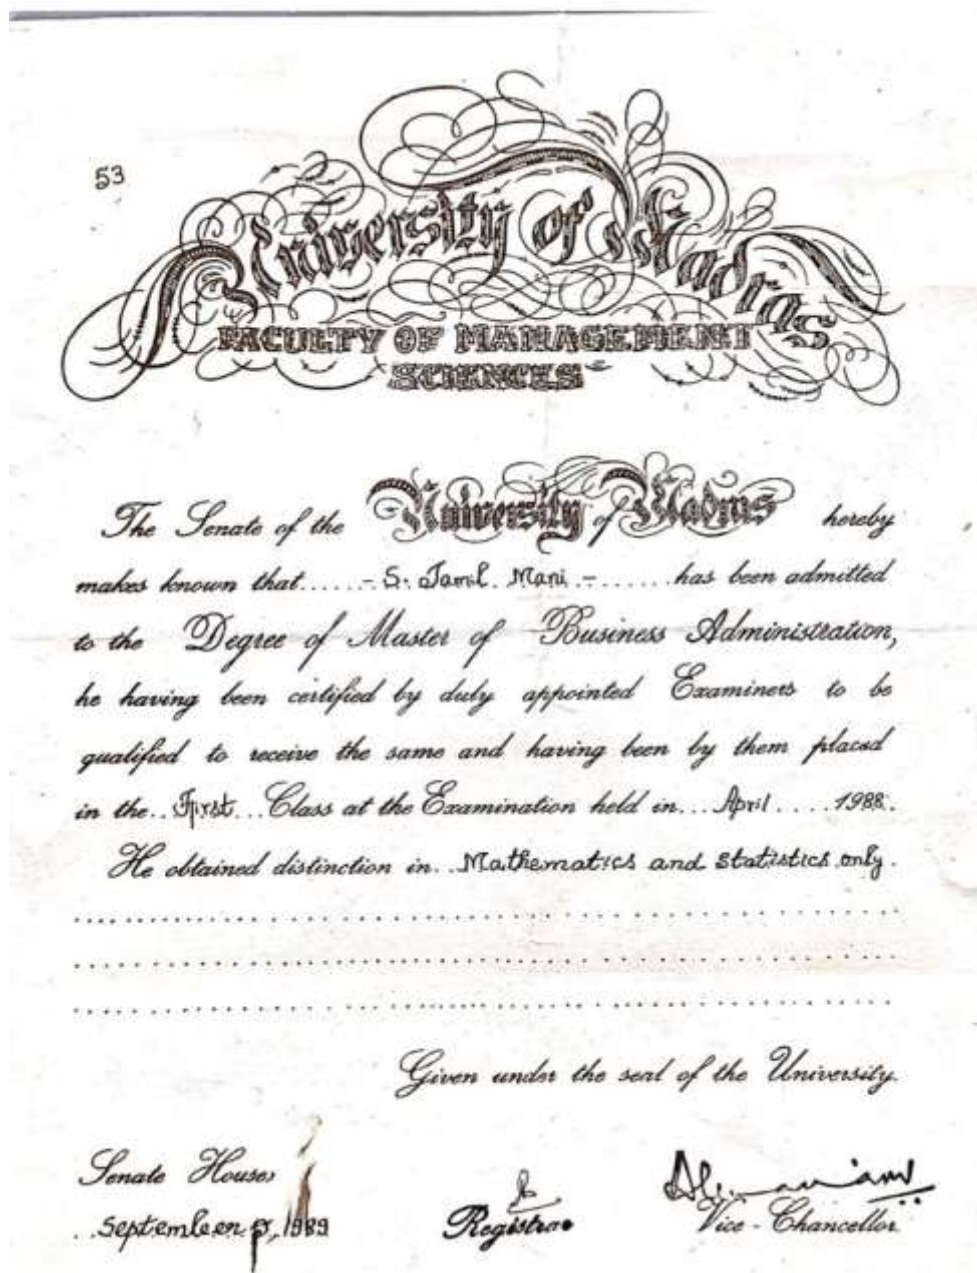 53
University of Madras
FACULTY OF MANAGEMENT
SCIENCES
The Senate of the University of Madras hereby
makes known that......- S. Tamil Mani -.......has been admitted
to the Degree of Master of Business Administration,
he having been certified by duly appointed Examiners to be
qualified to receive the same and having been by them placed
in the..First...Class at the Examination held in...April.....1988.
He obtained distinction in..Mathematics and Statistics only.
Given under the seal of the University.
Senate House,
September 1989
Registrar
Vice-Chancellor